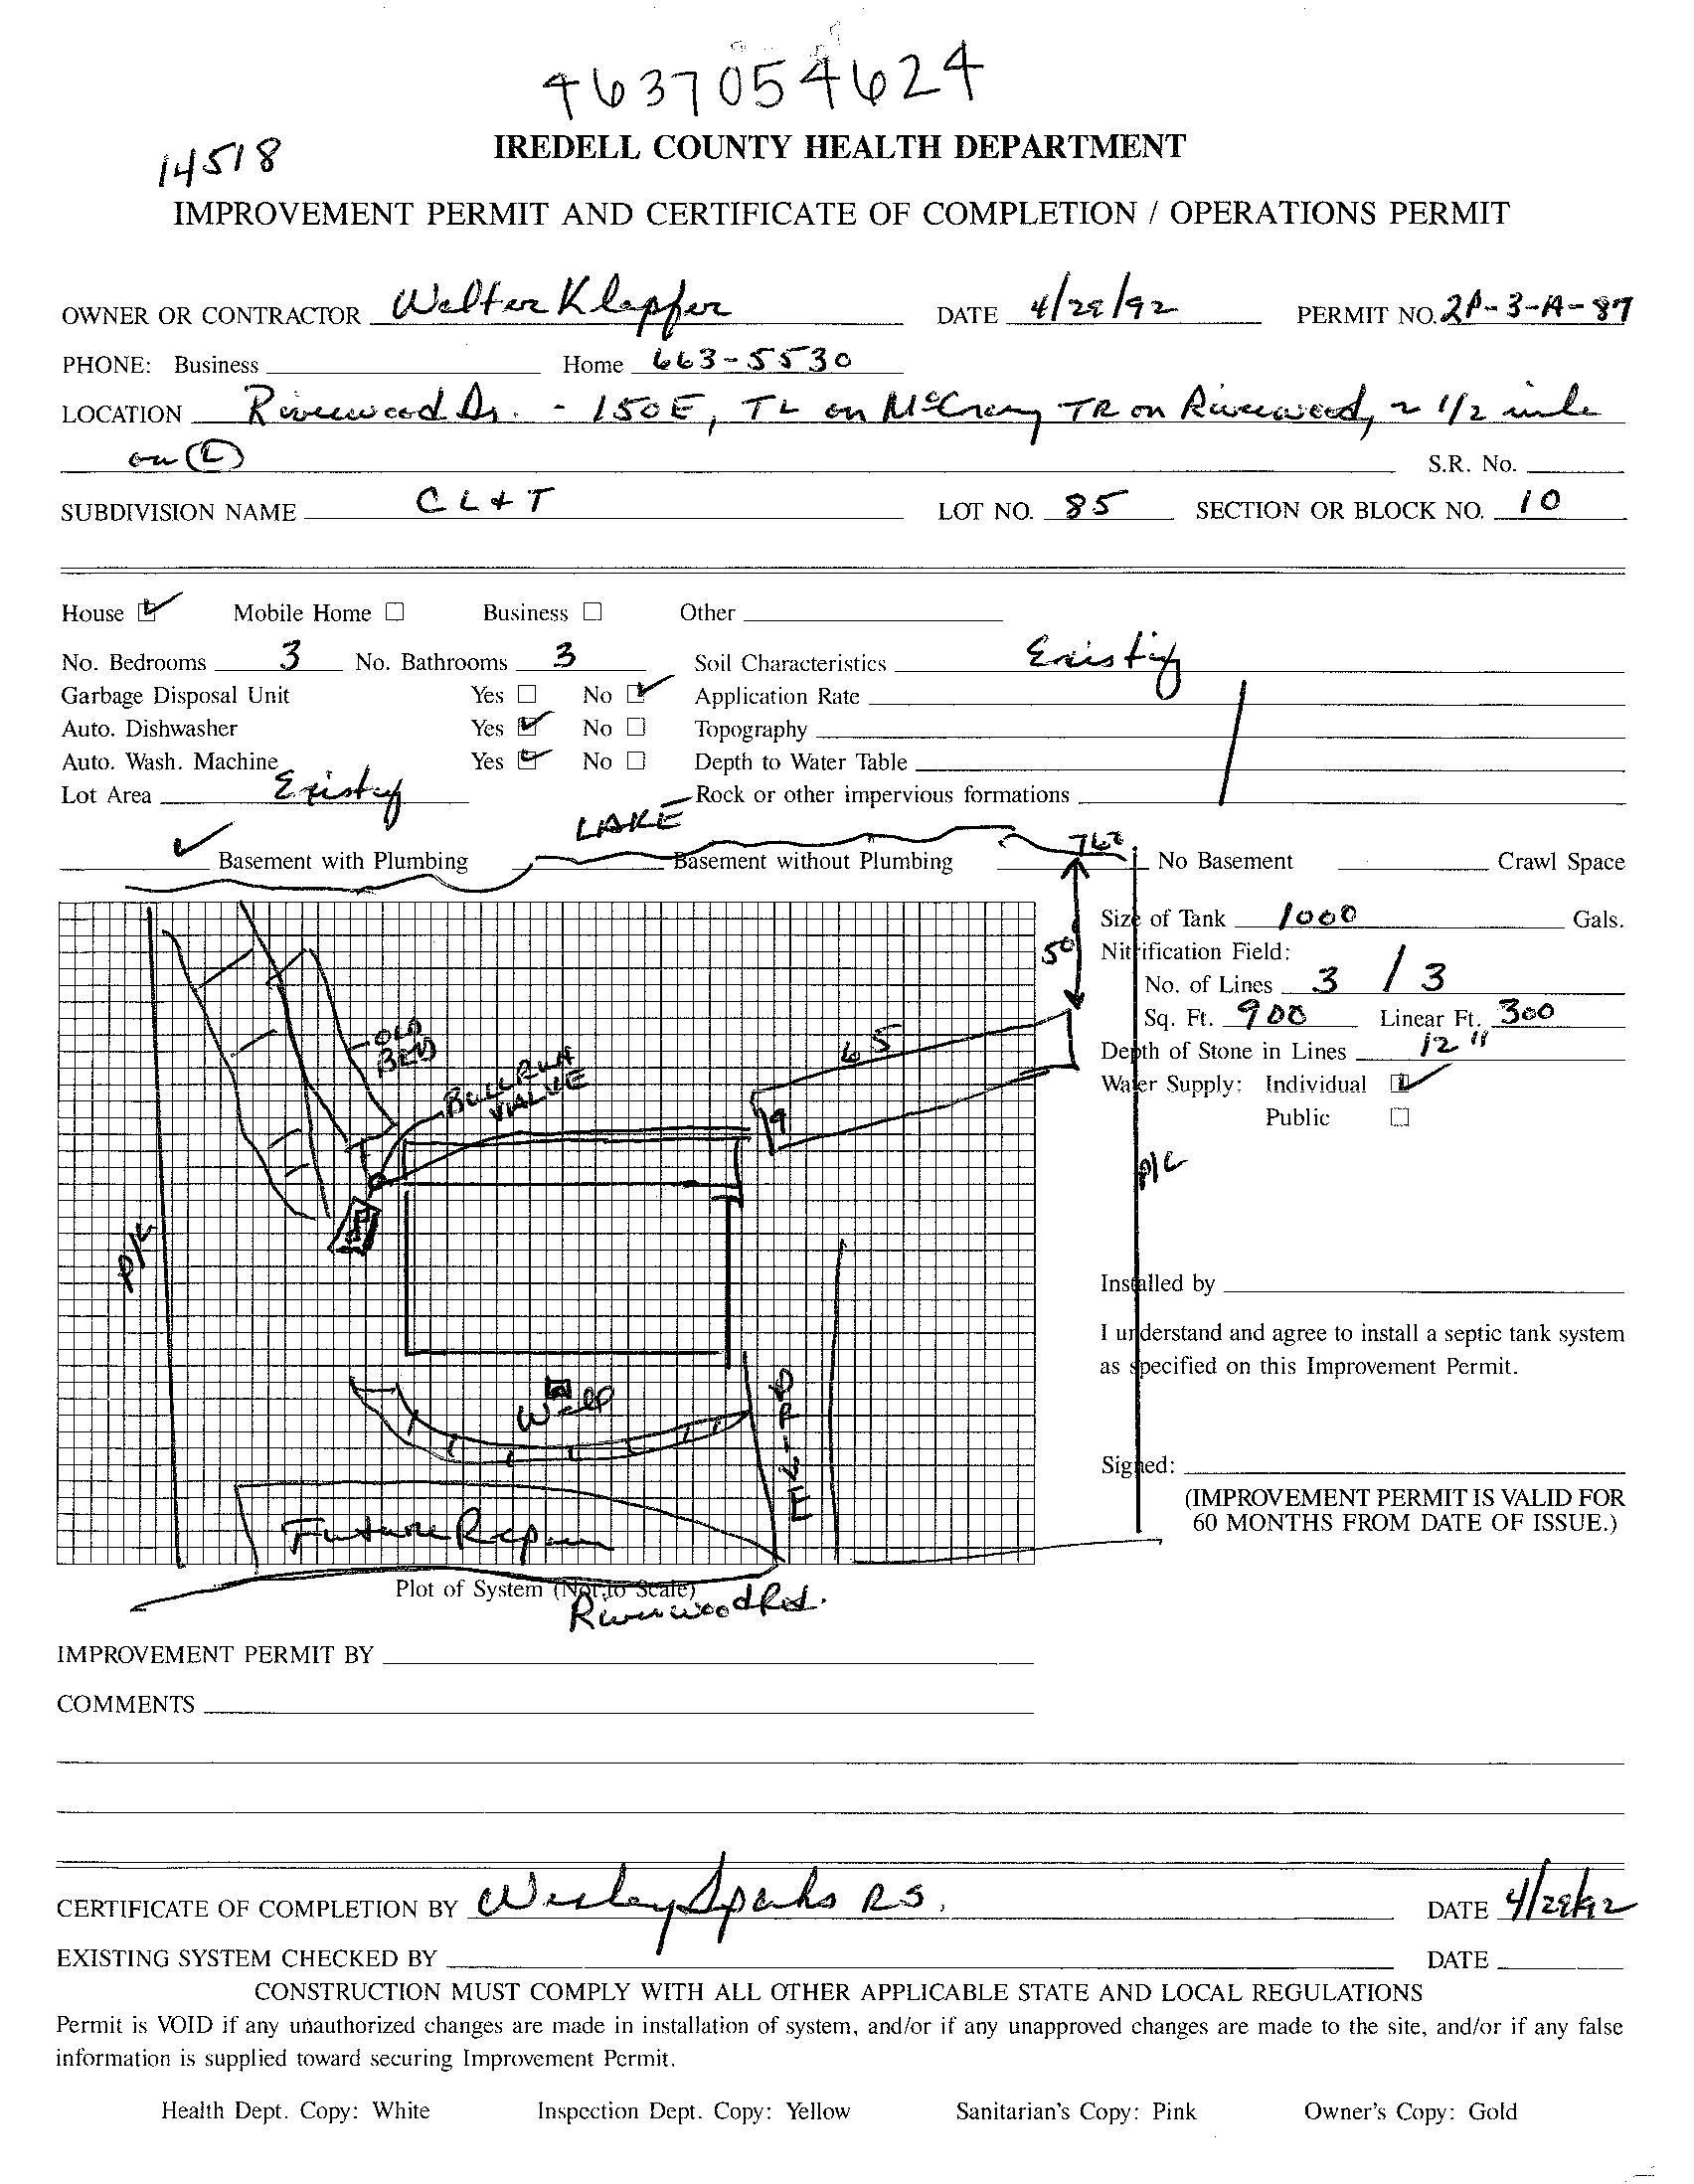 4637054624
14518
IREDELL COUNTY HEALTH DEPARTMENT
IMPROVEMENT PERMIT AND CERTIFICATE OF COMPLETION / OPERATIONS PERMIT
OWNER OR CONTRACTOR Walter Klapfer DATE 4/28/92 PERMIT NO. 2P-3-A-87
PHONE: Business Home 663-5530
LOCATION Riverwood Dr. - 150E, TL on McCrary TR on Riverwood, ~ 1/2 mile
on (L) S.R. No.
SUBDIVISION NAME CL+T LOT NO. 85 SECTION OR BLOCK NO. 10
House Mobile Home Business Other
No. Bedrooms 3 No. Bathrooms 3 Soil Characteristics Existing
Garbage Disposal Unit Yes No Application Rate
Auto. Dishwasher Yes No Topography
Auto. Wash. Machine Yes No Depth to Water Table
Lot Area Existing Rock or other impervious formations
LAKE
760
Basement with Plumbing Basement without Plumbing No Basement Crawl Space
Size of Tank 1000 Gals.
50
Nitrification Field:
No. of Lines 3 / 3
Sq. Ft. 900 Linear Ft. 300
OLD
BED
65
Depth of Stone in Lines 12"
BULLRUN
VALVE
Water Supply: Individual
19
Public
P/L
P/L
Installed by
I understand and agree to install a septic tank system
as specified on this Improvement Permit.
Well
DRIVE
Signed:
(IMPROVEMENT PERMIT IS VALID FOR
60 MONTHS FROM DATE OF ISSUE.)
Future Repair
Plot of System (Not to Scale)
Riverwood Rd.
IMPROVEMENT PERMIT BY
COMMENTS
CERTIFICATE OF COMPLETION BY Wesley Sparks RS. DATE 4/28/92
EXISTING SYSTEM CHECKED BY DATE
CONSTRUCTION MUST COMPLY WITH ALL OTHER APPLICABLE STATE AND LOCAL REGULATIONS
Permit is VOID if any unauthorized changes are made in installation of system, and/or if any unapproved changes are made to the site, and/or if any false
information is supplied toward securing Improvement Permit.
Health Dept. Copy: White Inspection Dept. Copy: Yellow Sanitarian's Copy: Pink Owner's Copy: Gold